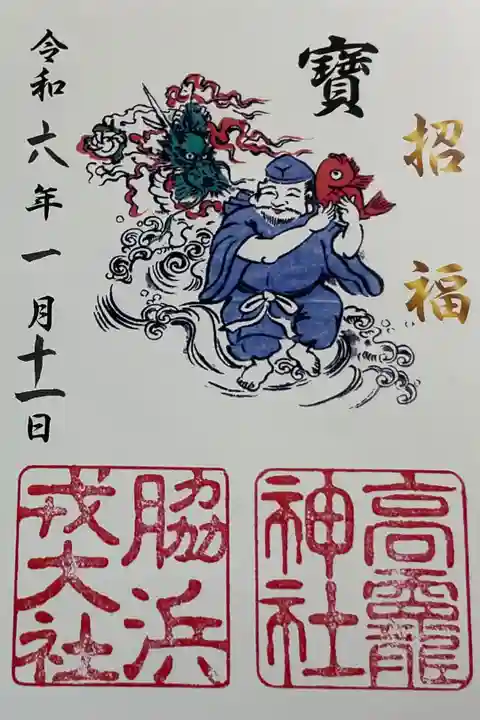 招福
寶
令和六年一月十一日
高龗
神社
脇浜
戎大社